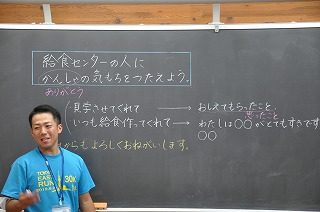 給食センターの人に
かんしゃの気もちをつたえよう。
ありがとう
見学させてくれて → おしえてもらったこと、
思ったこと
いつも給食作ってくれて → わたしは○○がとてもすきです
○○
からも よろしくおねがいします。
TOKYO
EAST
RUN 30K